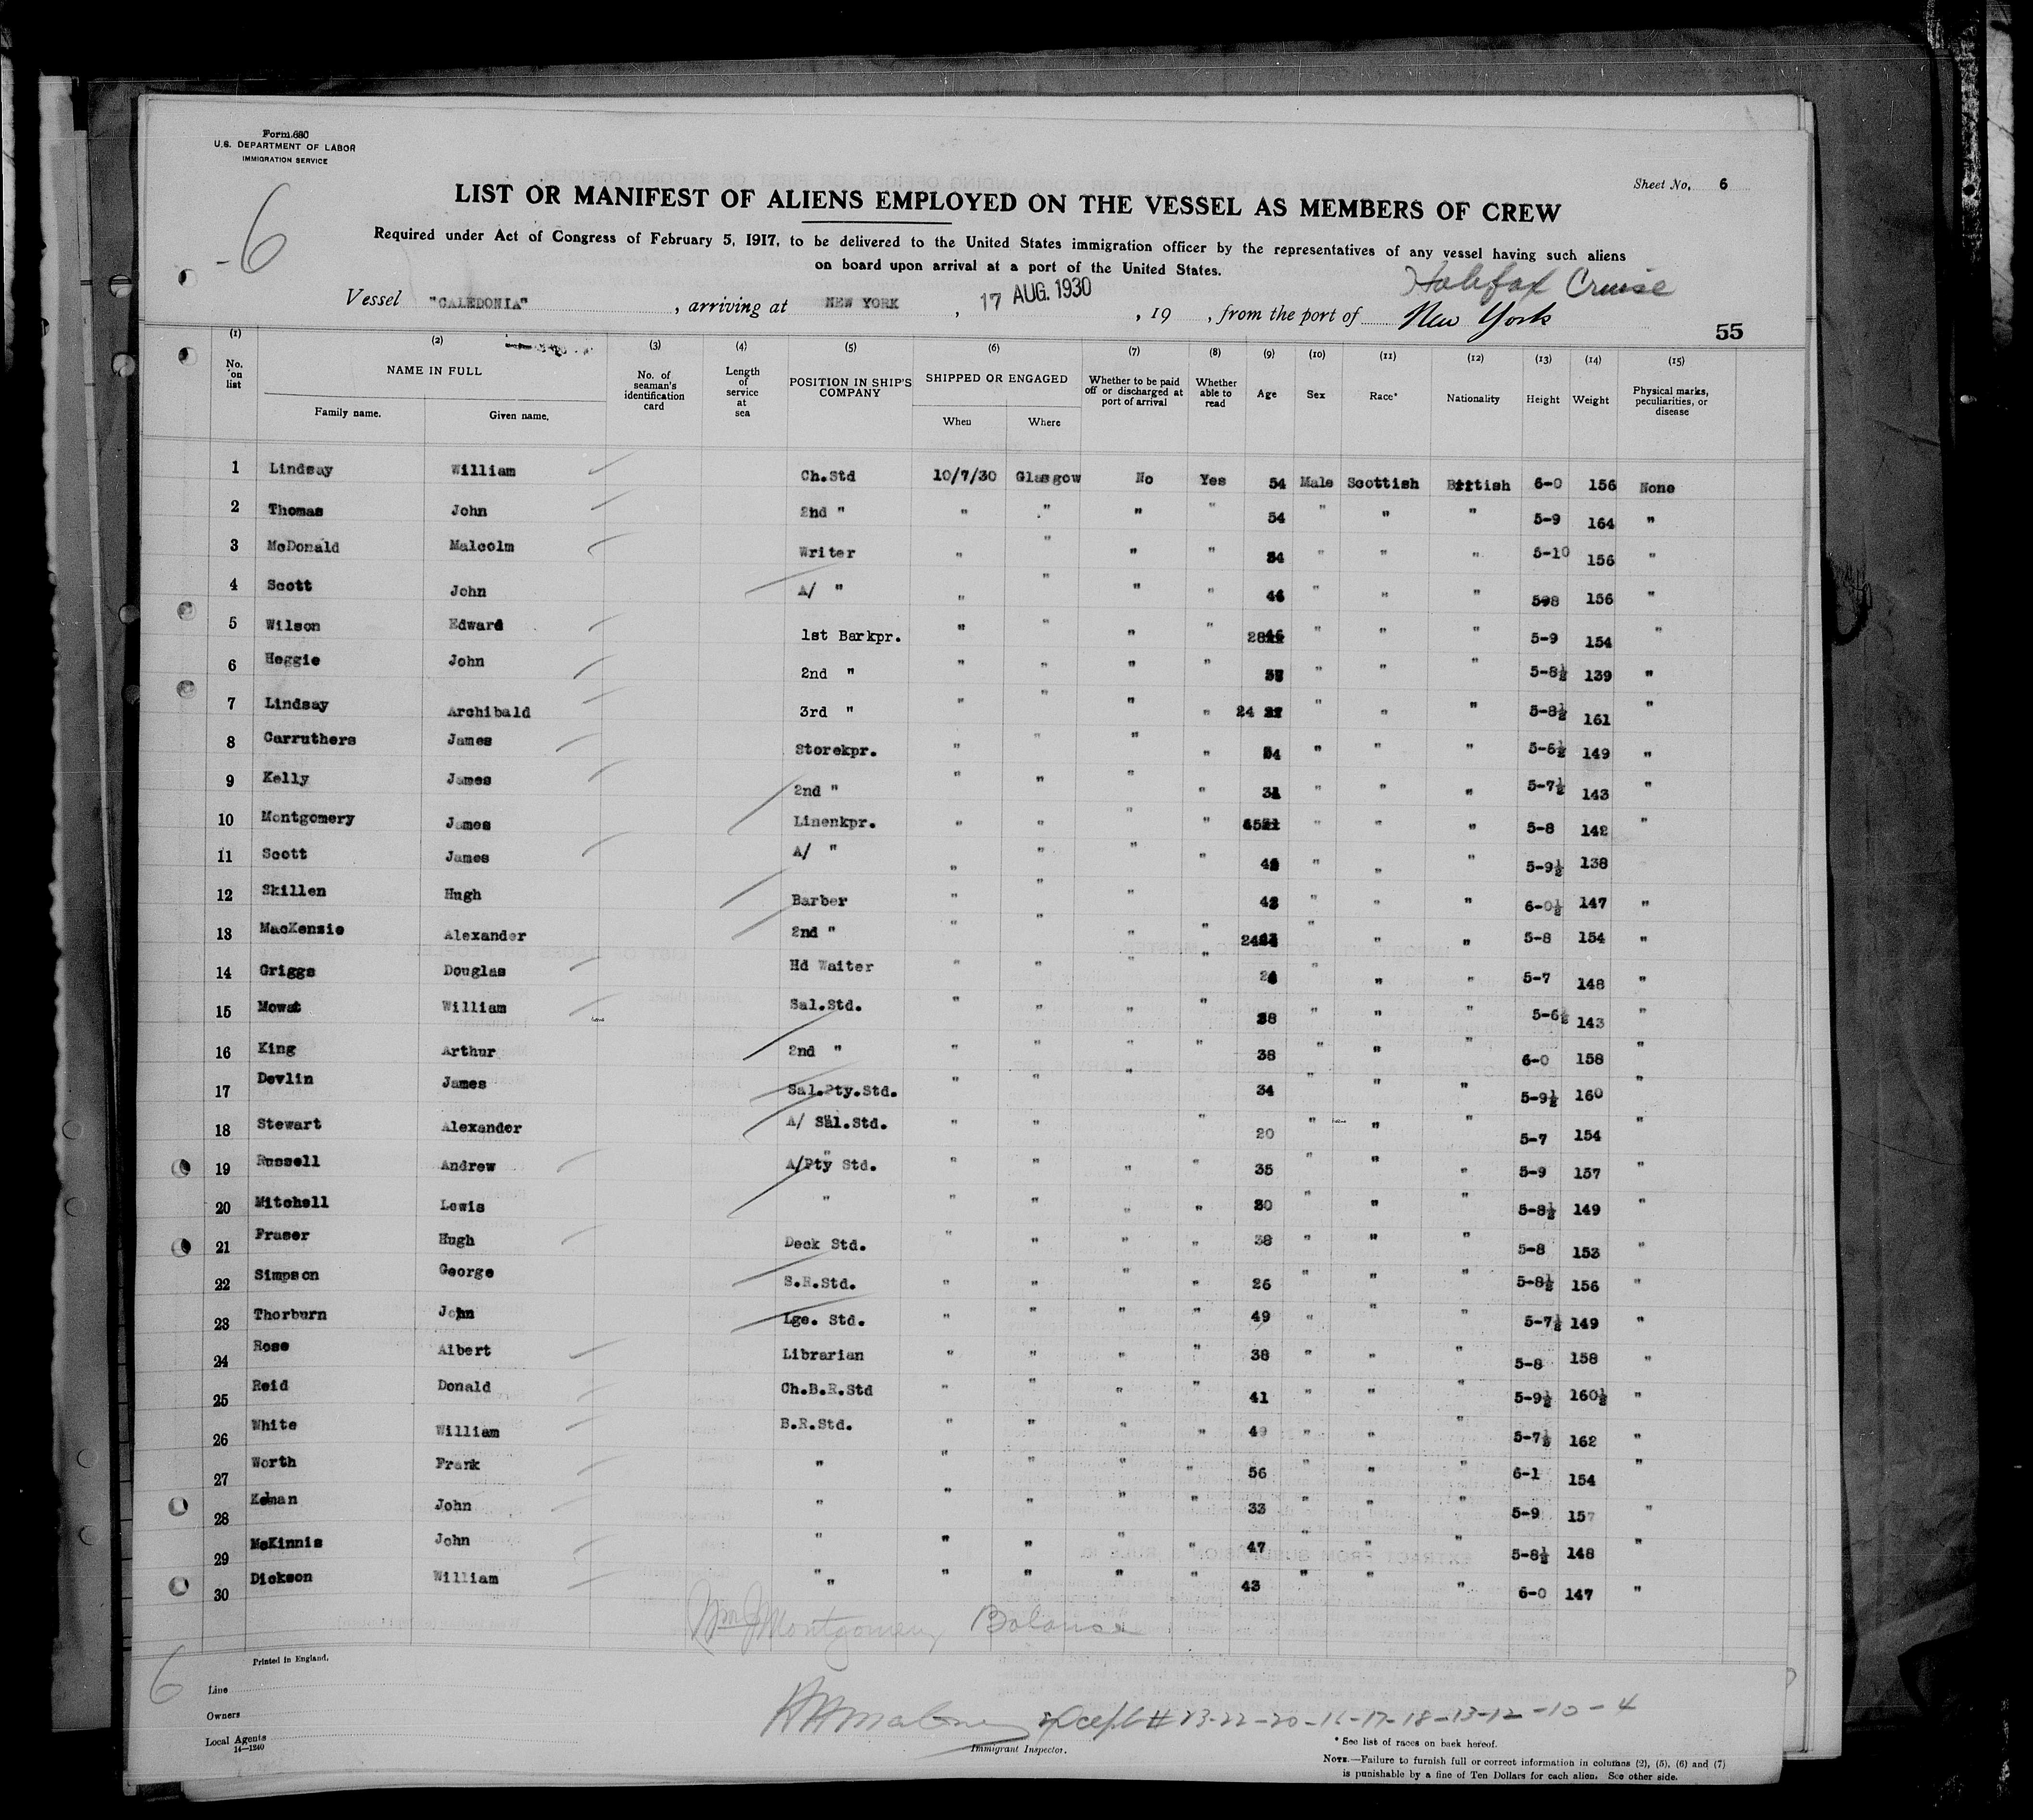 Form 680
U.S. DEPARTMENT OF LABOR
IMMIGRATION SERVICE
Sheet No. 6
-6
LIST OR MANIFEST OF ALIENS EMPLOYED ON THE VESSEL AS MEMBERS OF CREW
Required under Act of Congress of February 5, 1917, to be delivered to the United States immigration officer by the representatives of any vessel having such aliens
on board upon arrival at a port of the United States.
Halifax Cruise
Vessel "CALEDONIA", arriving at NEW YORK, 17 AUG. 1930, 19 , from the port of New York
55
(1) No. on list (2) NAME IN FULL Family name. Given name. (3) No. of seaman's identification card (4) Length of service at sea (5) POSITION IN SHIP'S COMPANY (6) SHIPPED OR ENGAGED When Where (7) Whether to be paid off or discharged at port of arrival (8) Whether able to read (9) Age (10) Sex (11) Race* (12) Nationality (13) Height (14) Weight (15) Physical marks, peculiarities, or disease
1 Lindsay William Ch.Std 10/7/30 Glasgow No Yes 54 Male Scottish British 6-0 156 None
2 Thomas John 2nd " " " " " 54 " " " 5-9 164 "
3 McDonald Malcolm Writer " " " " 34 " " " 5-10 156 "
4 Scott John A/ " " " " " " " " 598 156 "
5 Wilson Edward 1st Barkpr. " " " " 28 " " " 5-9 154 "
6 Heggie John 2nd " " " " " " " " 5-8½ 139 "
7 Lindsay Archibald 3rd " " " " " 24 " " " 5-8½ 161 "
8 Carruthers James Storekpr. " " " " " " " 5-6½ 149 "
9 Kelly James 2nd " " " " " " " " 5-7½ 143 "
10 Montgomery James Linenkpr. " " " " " " " 5-8 142 "
11 Scott James A/ " " " " " " " " 5-9½ 138
12 Skillen Hugh Barber " " " " " " 6-0½ 147 "
13 MacKenzie Alexander 2nd " " " " " 24 " " " 5-8 154 "
14 Griggs Douglas Hd Waiter " " " " " " 5-7 148 "
15 Mowat William Sal.Std. " " " " 38 " " " 5-6½ 143 "
16 King Arthur 2nd " " " " " 38 " " " 6-0 158 "
17 Devlin James Sal.Pty.Std. " " " 34 " " " 5-9½ 160 "
18 Stewart Alexander A/ Sal.Std. " " " 20 " " " 5-7 154 "
19 Russell Andrew A/Pty Std. " " " " 35 " " " 5-9 157 "
20 Mitchell Lewis " " " " " 30 " " " 5-8½ 149 "
21 Fraser Hugh Deck Std. " " " " 38 " " " 5-8 153 "
22 Simpson George S.R.Std. " " " " 26 " " " 5-8½ 156 "
23 Thorburn John Lge. Std. " " " " 49 " " " 5-7½ 149 "
24 Rose Albert Librarian " " " " 38 " " " 5-8 158 "
25 Reid Donald Ch.B.R.Std " " " " 41 " " " 5-9½ 160½ "
26 White William B.R.Std. " " " " 49 " " " 5-7½ 162 "
27 Worth Frank " " " " " 56 " " " 6-1 154 "
28 John " " " " " 33 " " " 5-9 157 "
29 McKinnis John " " " " " 47 " " " 5-8½ 148 "
30 Dickson William " " " " " 43 " " " 6-0 147 "
Wm J Montgomery Balance
Printed in England.
6
Line
Owners
Local Agents
14-1240
Maloney Except # 23-22-20-16-17-18-13-12-10-4
Immigrant Inspector.
* See list of races on back hereof.
NOTE.—Failure to furnish full or correct information in columns (2), (5), (6) and (7)
is punishable by a fine of Ten Dollars for each alien. See other side.